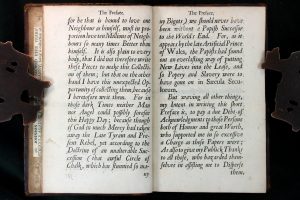 The Preface.
for he that is bound to love one
Neighbour as himself, must in pro-
portion love ten Millions of Neigh-
bours so many times Better than
himself. It is also plain to every
body, that I did not therefore write
those Pieces to make this Collecti-
on of them; but that on the other
hand I have this unexpected Op-
portunity of collecting them, because
I heretofore wrote them. For in
those dark Times neither Man
nor Angel could possibly foresee
this Happy Day; because though
if God so much Mercy had taken
away the Late Tyrant and Pre-
sent Rebel, yet according to the
Doctrine of an unalterable Suc-
cession (that artful Circle of
Chalk, which has stunted so ma-
ny
The Preface.
ny Bigots) we should never have
been without a Popish Successor
to the World's End. For, as it
appears by the late Artificial Prince
of Wales, the Papists had found
out an everlasting way of putting
New Lives into the Lease, and
so Popery and Slavery were to
have gone on in Secula Seculo-
rum.
But waving all other things,
my Intent in writing this short
Preface is, to pay a due Debt of
Acknowledgments to those Persons
both of Honour and great Worth,
who supported me in so excessive
a Charge as these Papers were;
As also to give my Publick Thanks
to all those, who hazarded them-
selves in assisting me to Disperse
them,